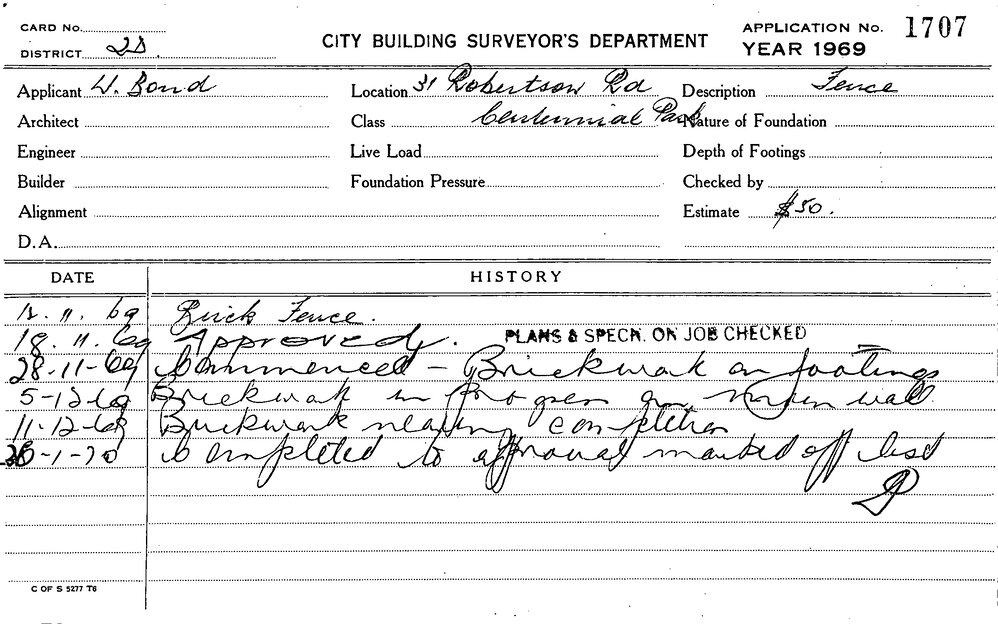 CARD No.
DISTRICT 2D.
CITY BUILDING SURVEYOR'S DEPARTMENT
APPLICATION No. 1707
YEAR 1969
Applicant W. Bond Location 31 Robertson Rd Description Fence
Architect Class Centennial Park Nature of Foundation
Engineer Live Load Depth of Footings
Builder Foundation Pressure Checked by
Alignment Estimate $50.
D.A.
DATE HISTORY
11. 69 Brick Fence.
18. 11. 69 Approved. PLANS & SPECN. ON JOB CHECKED
28-11-69 Commenced - Brickwork on footings
5-12-69 Brickwork in progress on wall
11-12-69 Brickwork nearing completion
-1-70 Completed to approval marked off list
C OF S 5277 T6